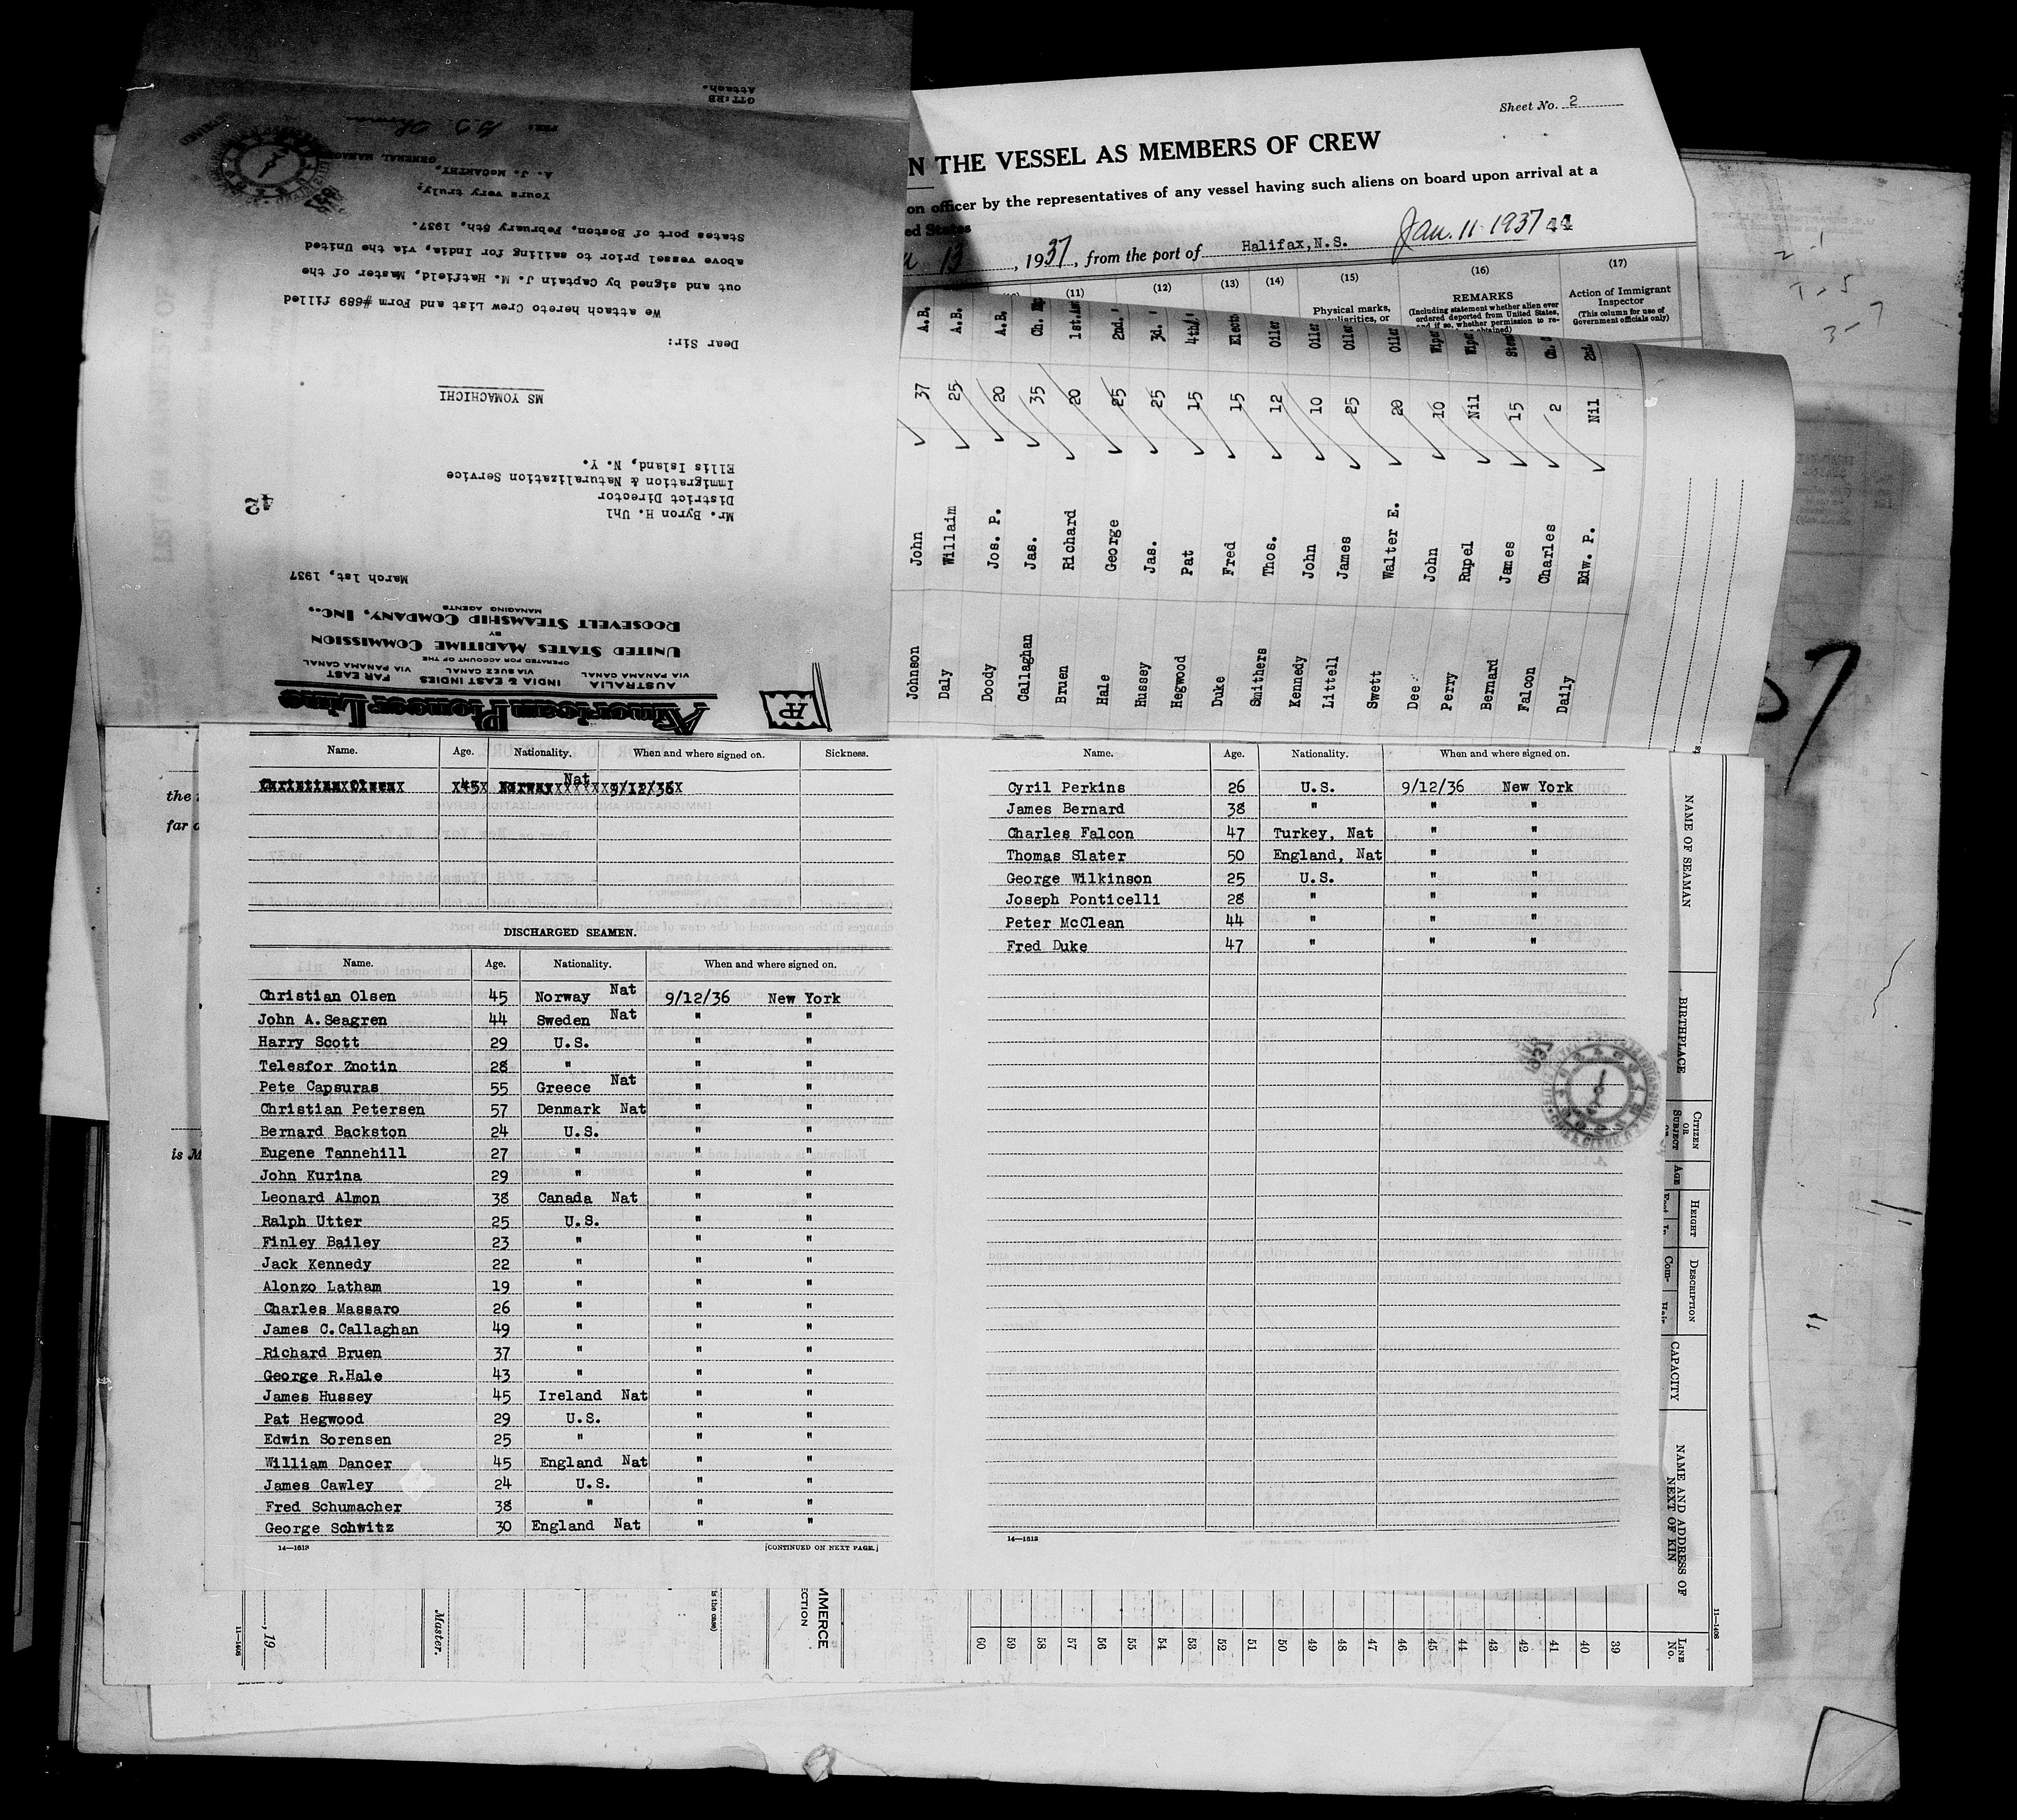 Sheet No. 2
N THE VESSEL AS MEMBERS OF CREW
on officer by the representatives of any vessel having such aliens on board upon arrival at a
ed States
13, 1937, from the port of Halifax, N.S. Jan. 11 1937 44
(11) (12) (13) (14) (15) (16) (17)
Physical marks,
REMARKS
(Including statement whether alien ever
ordered deported from United States,
and if so, whether permission to re-
obtained)
Action of Immigrant
Inspector
(This column for use of
Government officials only)
American Pioneer Line
AUSTRALIA INDIA & EAST INDIES FAR EAST
VIA PANAMA CANAL VIA SUEZ CANAL VIA PANAMA CANAL
OPERATED FOR ACCOUNT OF THE
UNITED STATES MARITIME COMMISSION
BY
ROOSEVELT STEAMSHIP COMPANY, INC.,
MANAGING AGENTS
March 1st, 1937
42
Mr. Byron H. Uhl
District Director
Immigration & Naturalization Service
Ellis Island, N. Y.
MS YOMACHICHI
Dear Sir:
We attach hereto Crew List and Form #689 filled
out and signed by Captain J. M. Hatfield, Master of the
above vessel prior to sailing for India, via the United
States port of Boston, February 5th, 1937.
Yours very truly,
A. J. McCARTHY,
GENERAL MANAGER
PER:
GTT:RB
Attach.
Johnson John 37 A.B.
Daly Willaim 25 A.B.
Doody Jos. P. 20 A.B.
Callaghan Jas. 35 Ch.
Bruen Richard 20 1st.
Hale George 25 2nd.
Hussey Jas. 25 3d.
Hegwood Pat 15 4th
Duke Fred 15
Smithers Thos. 12 Oiler
Kennedy John 10 Oiler
Littell James 25 Oiler
Swett Walter E. 20 Oiler
Dee John 10
Perry Rupel Nil
Bernard James 15
Falcon Charles 2
Daily Edw. P. Nil 2nd.
Name. Age. Nationality. When and where signed on. Sickness.
Christian Olsen 45 Norway Nat 9/12/36
DISCHARGED SEAMEN.
Name. Age. Nationality. When and where signed on.
Christian Olsen 45 Norway Nat 9/12/36 New York
John A. Seagren 44 Sweden Nat " "
Harry Scott 29 U.S. " "
Telesfor Znotin 28 " " "
Pete Capsuras 55 Greece Nat " "
Christian Petersen 57 Denmark Nat " "
Bernard Backston 24 U.S. " "
Eugene Tannehill 27 " " "
John Kurina 29 " " "
Leonard Almon 38 Canada Nat " "
Ralph Utter 25 U.S. " "
Finley Bailey 23 " " "
Jack Kennedy 22 " " "
Alonzo Latham 19 " " "
Charles Massaro 26 " " "
James C. Callaghan 49 " " "
Richard Bruen 37 " " "
George R. Hale 43 " " "
James Hussey 45 Ireland Nat " "
Pat Hegwood 29 U.S. " "
Edwin Sorensen 25 " " "
William Dancer 45 England Nat " "
James Cawley 24 U.S. " "
Fred Schumacher 38 " " "
George Schwitz 30 England Nat " "
14—1613 [CONTINUED ON NEXT PAGE.]
Name. Age. Nationality. When and where signed on.
Cyril Perkins 26 U.S. 9/12/36 New York
James Bernard 38 " " "
Charles Falcon 47 Turkey, Nat " "
Thomas Slater 50 England, Nat " "
George Wilkinson 25 U.S. " "
Joseph Ponticelli 28 " " "
Peter McClean 44 " " "
Fred Duke 47 " " "
14—1613
the
far
is M
NAME OF SEAMAN
BIRTHPLACE
CITIZEN
OR
SUBJECT
AGE
HEIGHT
DESCRIPTION
Com-
CAPACITY
NAME AND ADDRESS OF
NEXT OF KIN
LINE
No.
39
40
41
42
43
44
45
46
47
48
49
50
51
52
53
54
55
56
57
58
59
60
11—1406
MMERCE
CTION
is the case)
Master.
, 19
11—1406